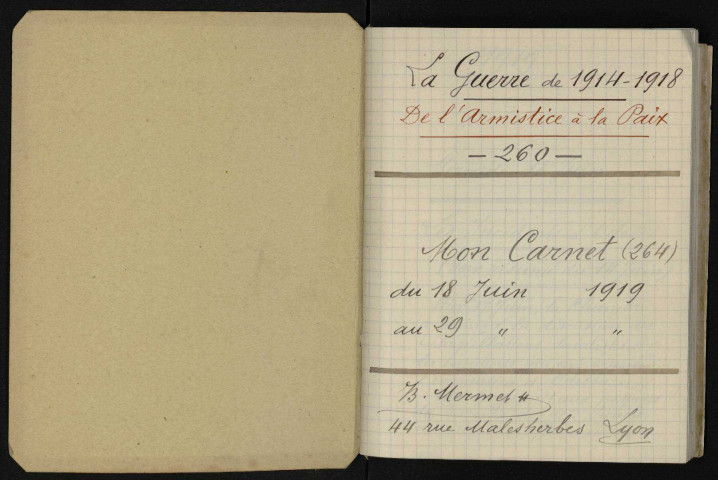 La Guerre de 1914-1918
De l'Armistice à la Paix
— 260 —
Mon Carnet (264)
du 18 Juin 1919
au 29 " "
B. Mermet
44 rue Malesherbes Lyon